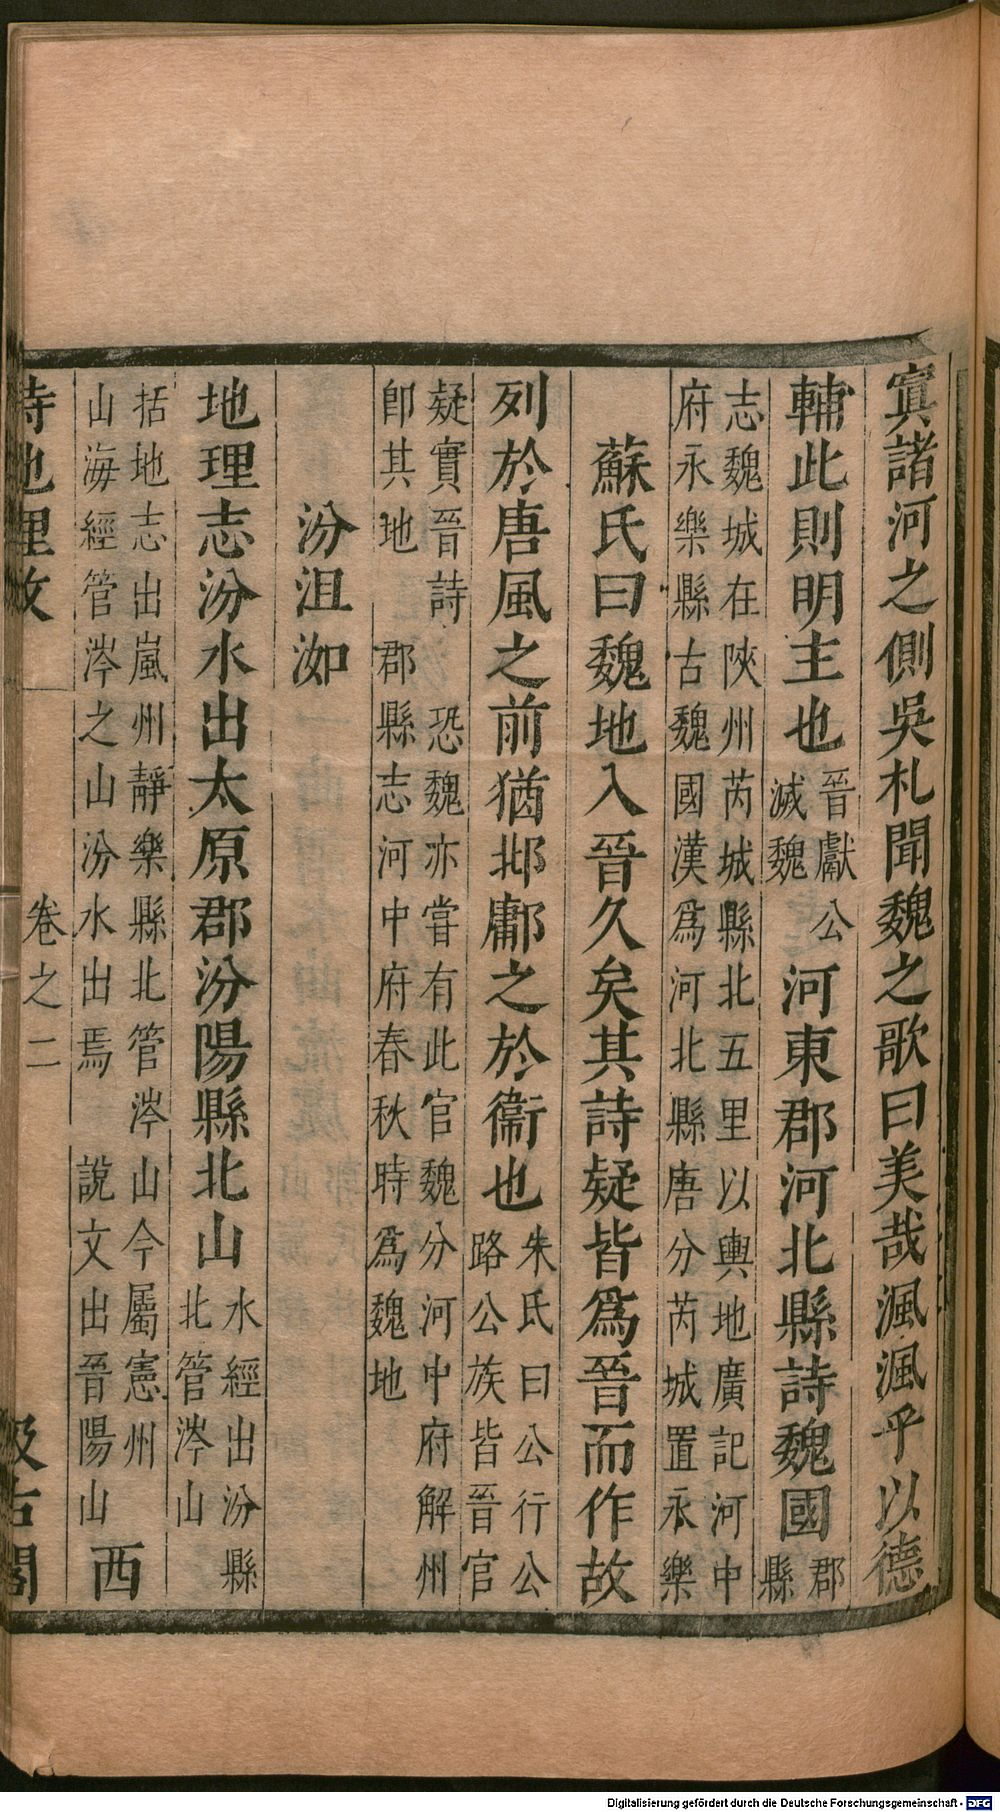 寘諸河之側吳札聞魏之歌曰美哉渢渢乎以德
輔此則明主也晉獻公滅魏河東郡河北縣詩魏國郡縣
志魏城在陝州芮城縣北五里以輿地廣記河中
府永樂縣古魏國漢爲河北縣唐分芮城置永樂
蘇氏曰魏地入晉久矣其詩疑皆爲晉而作故
列於唐風之前猶邶鄘之於衞也朱氏曰公行公路公族皆晉官
疑實晉詩 恐魏亦嘗有此官魏分河中府解州
卽其地 郡縣志河中府春秋時爲魏地
汾沮洳
地理志汾水出太原郡汾陽縣北山水經出汾縣北管涔山
括地志出嵐州靜樂縣北管涔山今屬憲州
山海經管涔之山汾水出焉 說文出晉陽山
西
詩地理攷 卷之二 汲古閣
Digitalisierung gefördert durch die Deutsche Forschungsgemeinschaft - DFG